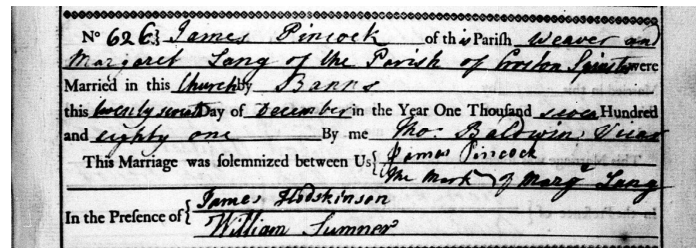 No 626} James Pincock of this Parish Weaver and
Margaret Lang of the Parish of Croston Spinster were
Married in this Church by Banns
this twenty seventh Day of December in the Year One Thousand seven Hundred
and eighty one By me Tho. Baldwin, Vicar
This Marriage was solemnized between Us { James Pincock
The Mark of Margt Lang
In the Presence of { James Hodskinson
William Sumner